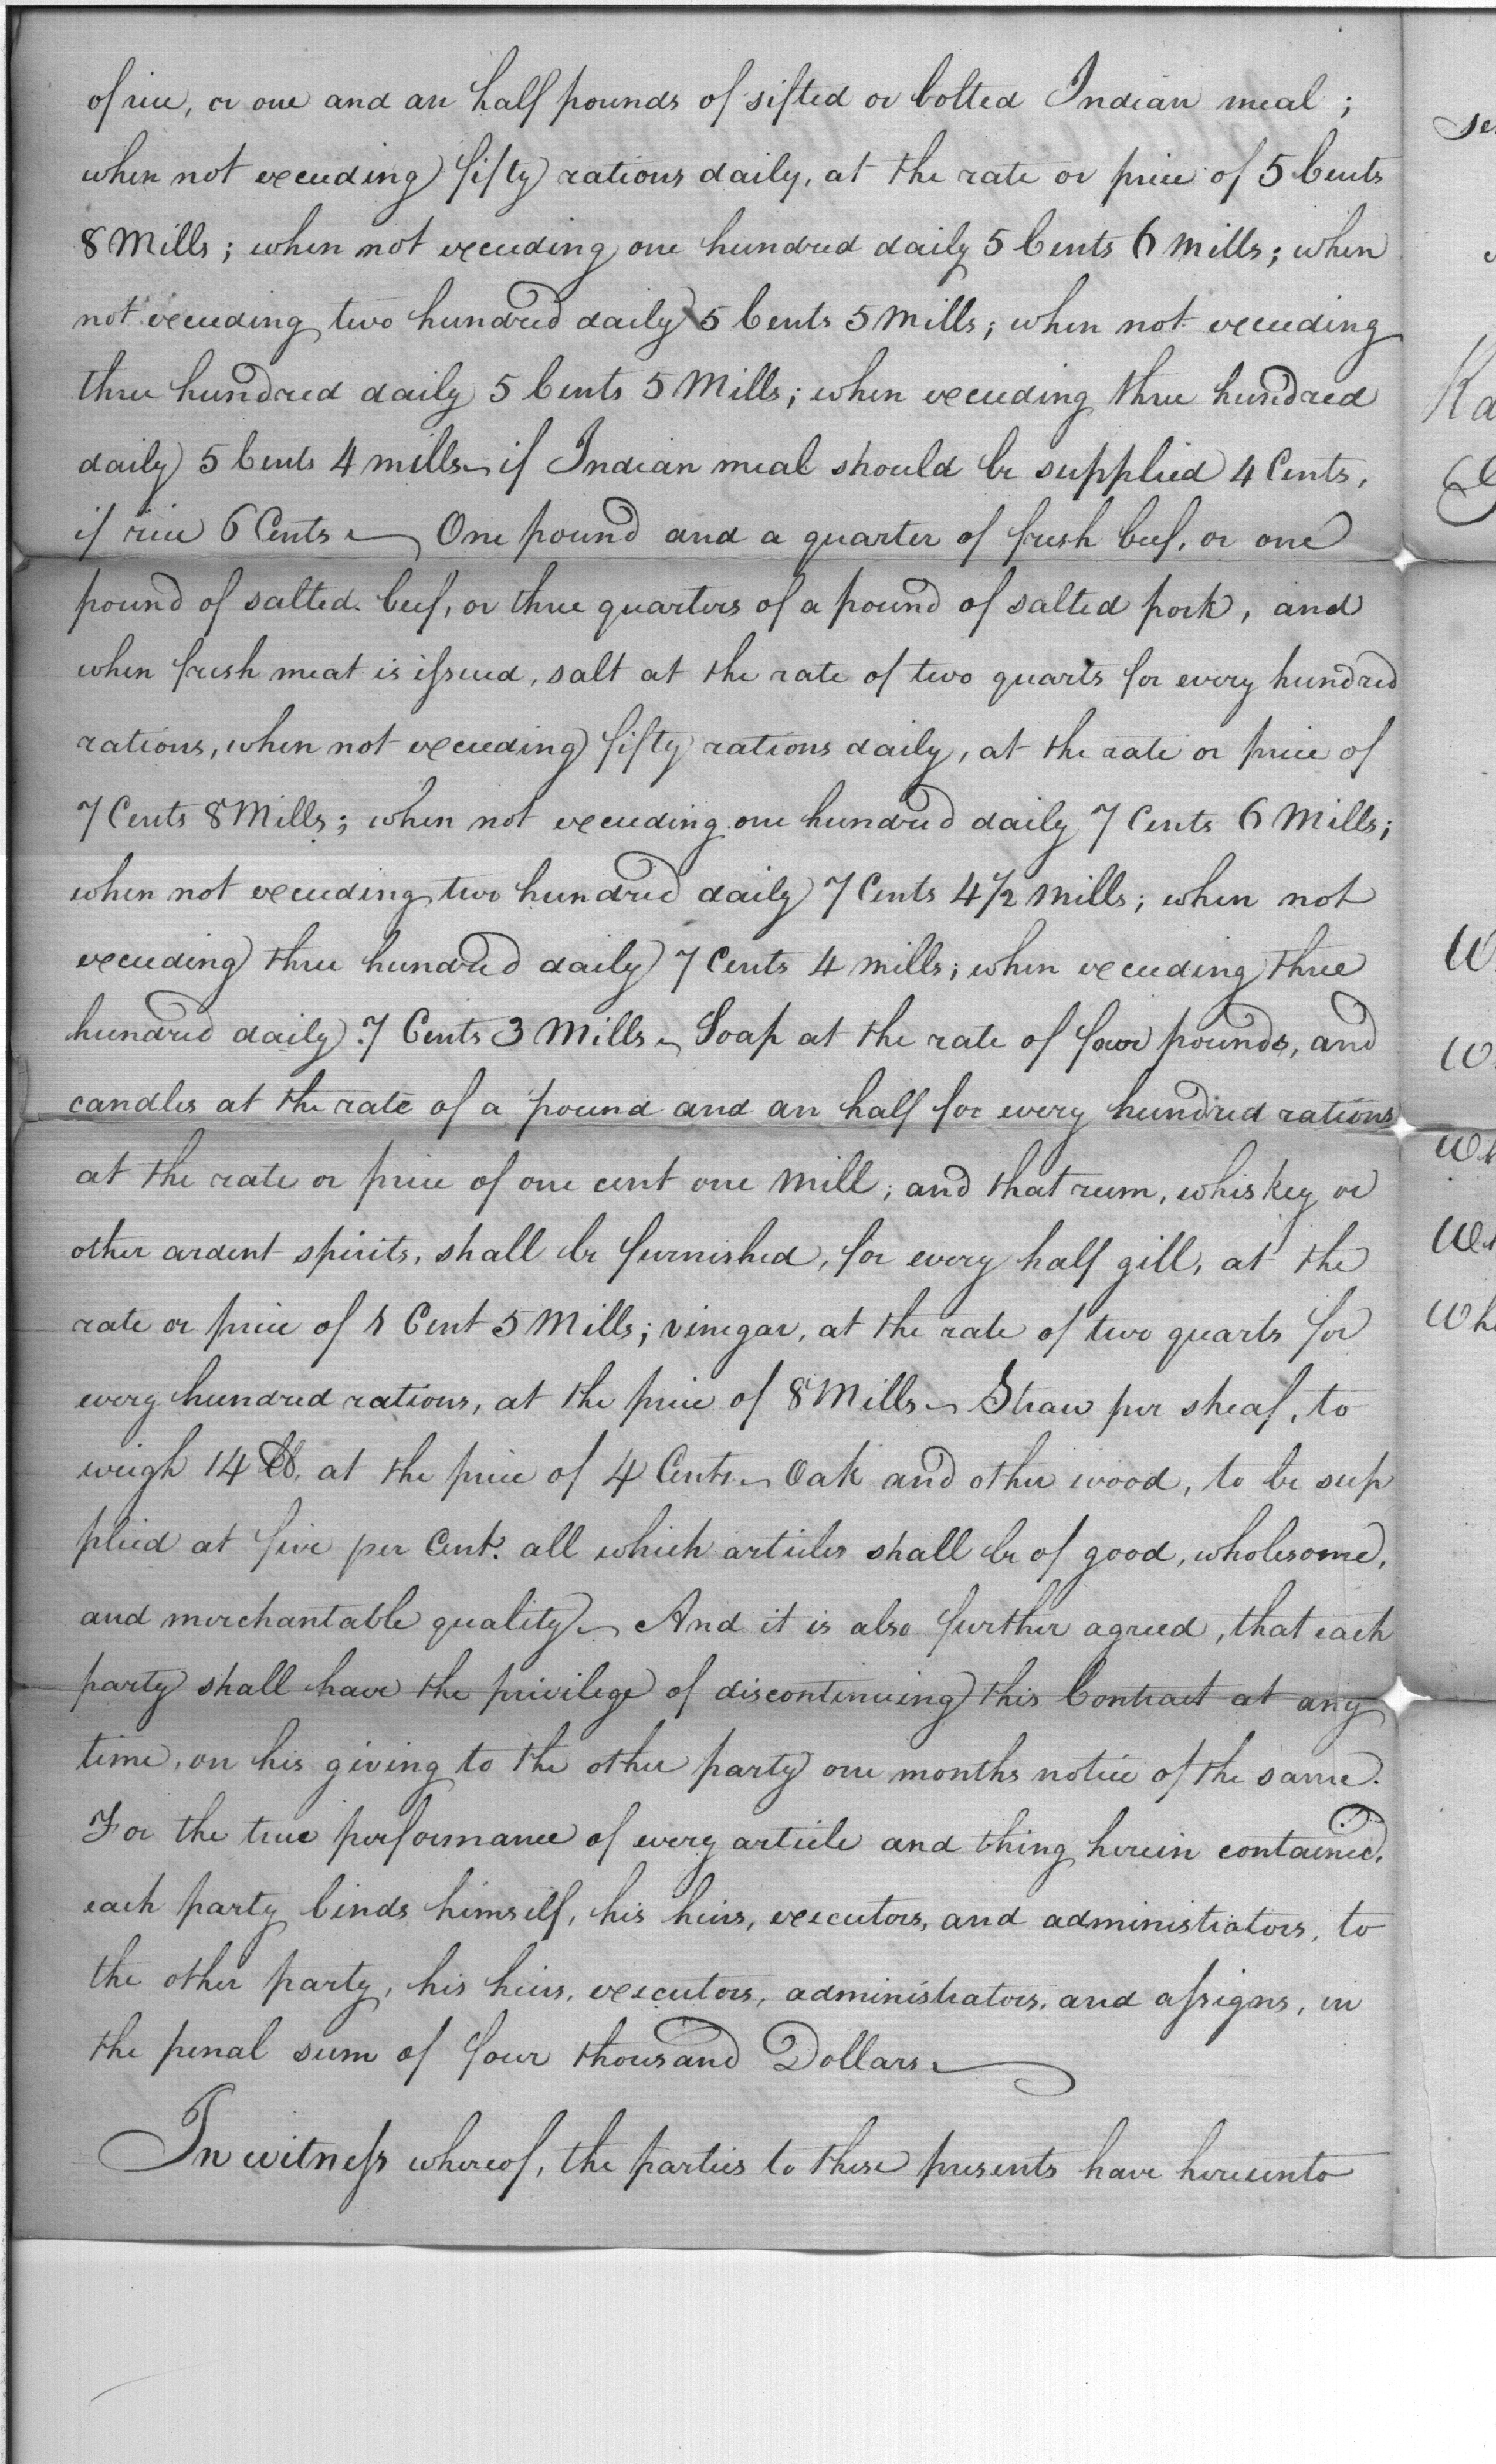 of rice, or one and an half pounds of sifted or bolted Indian meal;
when not exceeding fifty rations daily, at the rate or price of 5 Cents
8 Mills; when not exceeding one hundred daily 5 Cents 6 Mills; when
not exceeding two hundred daily 5 Cents 5 Mills; when not exceeding
three hundred daily 5 Cents 5 Mills; when exceeding three hundred
daily 5 Cents 4 mills — if Indian meal should be supplied 4 Cents,
if rice 6 Cents — One pound and a quarter of fresh beef, or one
pound of salted beef, or three quarters of a pound of salted pork, and
when fresh meat is issued, salt at the rate of two quarts for every hundred
rations, when not exceeding fifty rations daily, at the rate or price of
7 Cents 8 Mills; when not exceeding one hundred daily 7 Cents 6 Mills;
when not exceeding two hundred daily 7 Cents 4 1/2 Mills; when not
exceeding three hundred daily 7 Cents 4 mills; when exceeding three
hundred daily 7 Cents 3 Mills — Soap at the rate of four pounds, and
candles at the rate of a pound and an half for every hundred rations
at the rate or price of one cent one Mill; and that rum, whiskey or
other ardent spirits, shall be furnished, for every half gill, at the
rate or price of 1 Cent 5 Mills; vinegar, at the rate of two quarts for
every hundred rations, at the price of 8 Mills — Straw per sheaf, to
weigh 14 lb, at the price of 4 Cents — Oak and other wood, to be sup
plied at five per Cent. all which articles shall be of good, wholesome,
and merchantable quality — And it is also further agreed, that each
party shall have the privilege of discontinuing this Contract at any
time, on his giving to the other party one months notice of the same.
For the true performance of every article and thing herein contained,
each party binds himself, his heirs, executors, and administrators, to
the other party, his heirs, executors, administrators, and assigns, in
the penal sum of four thousand Dollars —
In witness whereof, the parties to these presents have hereunto